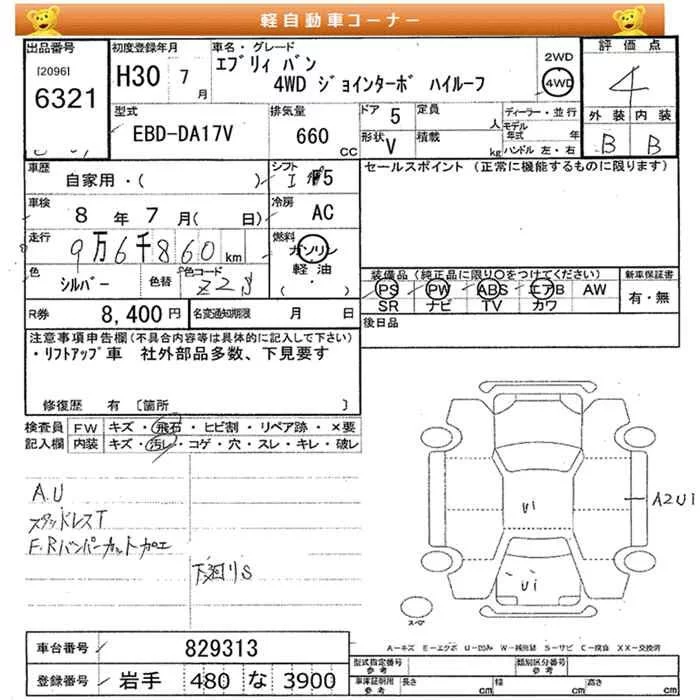 軽自動車コーナー
出品番号
[2096]
6321
初度登録年月
H30 7月
車名・グレード
エブリィ バン
4WD ジョインターボ ハイルーフ
2WD
4WD
評価点
4
外装 内装
B B
型式
EBD-DA17V
排気量
660 CC
ドア 5
形状 V
定員 人
積載 kg
ディーラー・並行
モデル年式 年
ハンドル 左・右
車歴
自家用・( )
シフト
5
セールスポイント (正常に機能するものに限ります)
車検
8年7月( 日)
冷房
AC
走行
9万6千860km
燃料
ガソリン
軽油
( ・ )
色
シルバー
色替
色コード
Z2S
装備品(純正品に限り○をつけてください)
PS PW ABS エアB AW
SR ナビ TV カワ
新車保証書
有・無
R券 8,400円
名変通知期限 月 日
後日品
注意事項申告欄(不具合内容等は具体的に記入して下さい)
・リフトアップ車 社外部品多数、下見要す
修復歴 有 [箇所 ]
検査員 FW キズ・飛石・ヒビ割・リペア跡・×要
記入欄 内装 キズ・汚レ・コゲ・穴・スレ・キレ・破レ
A.U
スタッドレスT
F.Rバンパーカット加工
下廻りS
U1
U1
A2U1
スペア
A-キズ E-エクボ U-凹み W-補修跡 S-サビ C-腐食 XX-交換済
車台番号 829313
登録番号 岩手 480 な 3900
型式指定番号 参考
類別区分番号 参考
車庫証明用 参考
長さ cm 幅 cm 高さ cm